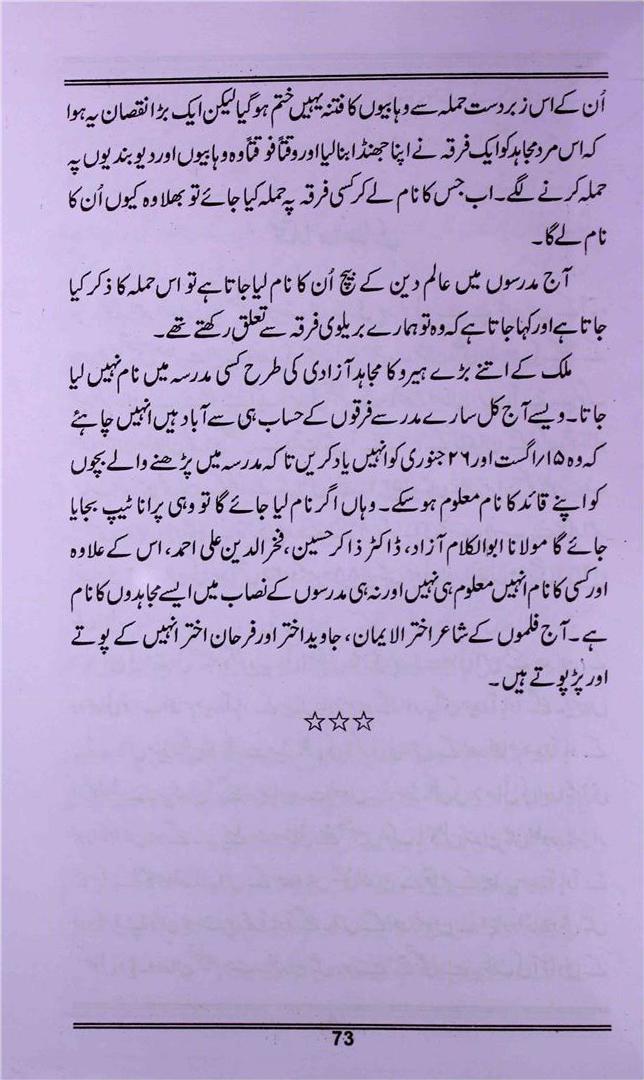 اُن کے اس زبردست حملہ سے وہابیوں کا فتنہ یہیں ختم ہوگیا لیکن ایک بڑا نقصان یہ ہوا
کہ اس مرد مجاہد کو ایک فرقہ نے اپنا جھنڈا بنا لیا اور وقتاً فوقتاً وہ وہابیوں اور دیوبندیوں پہ
حملہ کرنے لگے۔ اب جس کا نام لے کر کسی فرقہ پہ حملہ کیا جائے تو بھلا وہ کیوں اُن کا
نام لے گا۔
آج مدرسوں میں عالم دین کے بیچ اُن کا نام لیا جاتا ہے تو اس حملہ کا ذکر کیا
جاتا ہے اور کہا جاتا ہے کہ وہ تو ہمارے بریلوی فرقہ سے تعلق رکھتے تھے۔
ملک کے اتنے بڑے ہیرو کا مجاہد آزادی کی طرح کسی مدرسہ میں نام نہیں لیا
جاتا۔ ویسے آج کل سارے مدرسے فرقوں کے حساب ہی سے آباد ہیں انہیں چاہئے
کہ وہ ۱۵/اگست اور ۲۶ جنوری کو انہیں یاد کریں تاکہ مدرسہ میں پڑھنے والے بچوں
کو اپنے قائد کا نام معلوم ہوسکے۔ وہاں اگر نام لیا جائے گا تو وہی پرانا ٹیپ بجایا
جائے گا مولانا ابوالکلام آزاد، ڈاکٹر ذاکر حسین، فخرالدین علی احمد، اس کے علاوہ
اور کسی کا نام انہیں معلوم ہی نہیں اور نہ ہی مدرسوں کے نصاب میں ایسے مجاہدوں کا نام
ہے۔ آج فلموں کے شاعر اختر الایمان، جاوید اختر اور فرحان اختر انہیں کے پوتے
اور پڑپوتے ہیں۔
☆☆☆
73